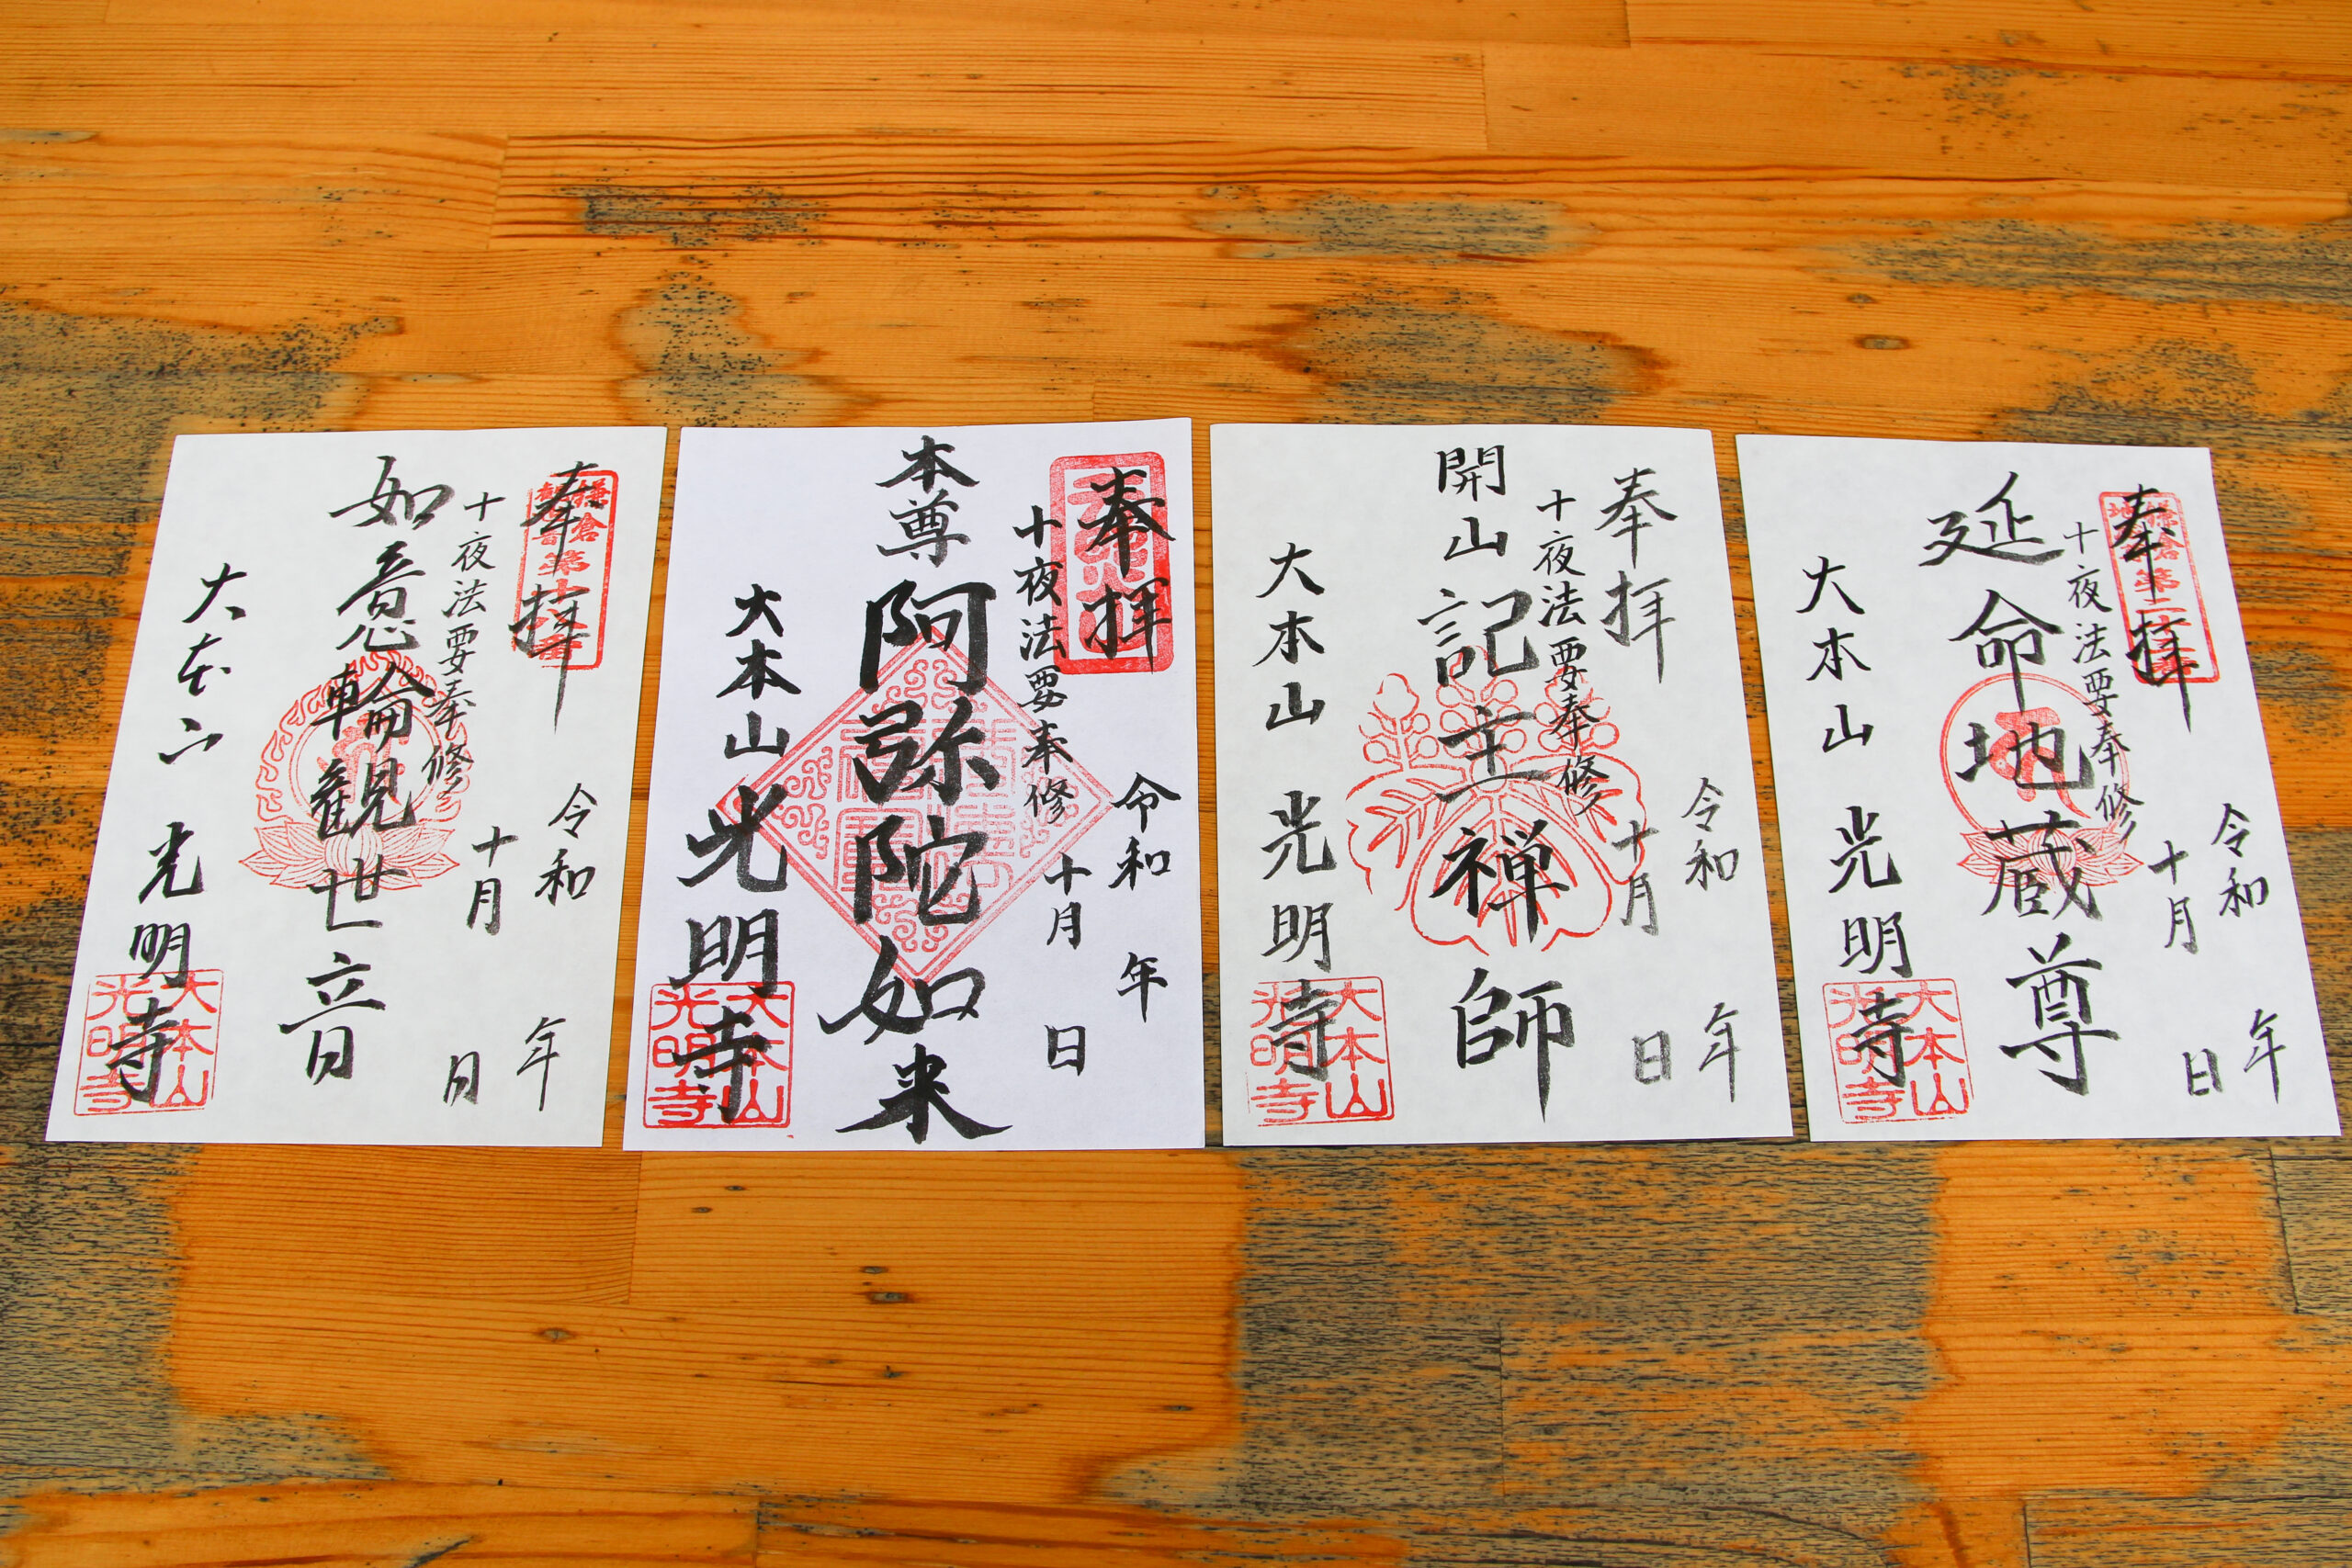 奉拝
十夜法要奉修
令和　年
十月　日
如意輪観世音
大本山　光明寺
大本山
光明寺
奉拝
十夜法要奉修
令和　年
十月　日
本尊阿弥陀如来
大本山光明寺
大本山
光明寺
奉拝
十夜法要奉修
令和　年
十月　日
開山記主禅師
大本山　光明寺
大本山
光明寺
奉拝
十夜法要奉修
令和　年
十月　日
延命地蔵尊
大本山　光明寺
大本山
光明寺